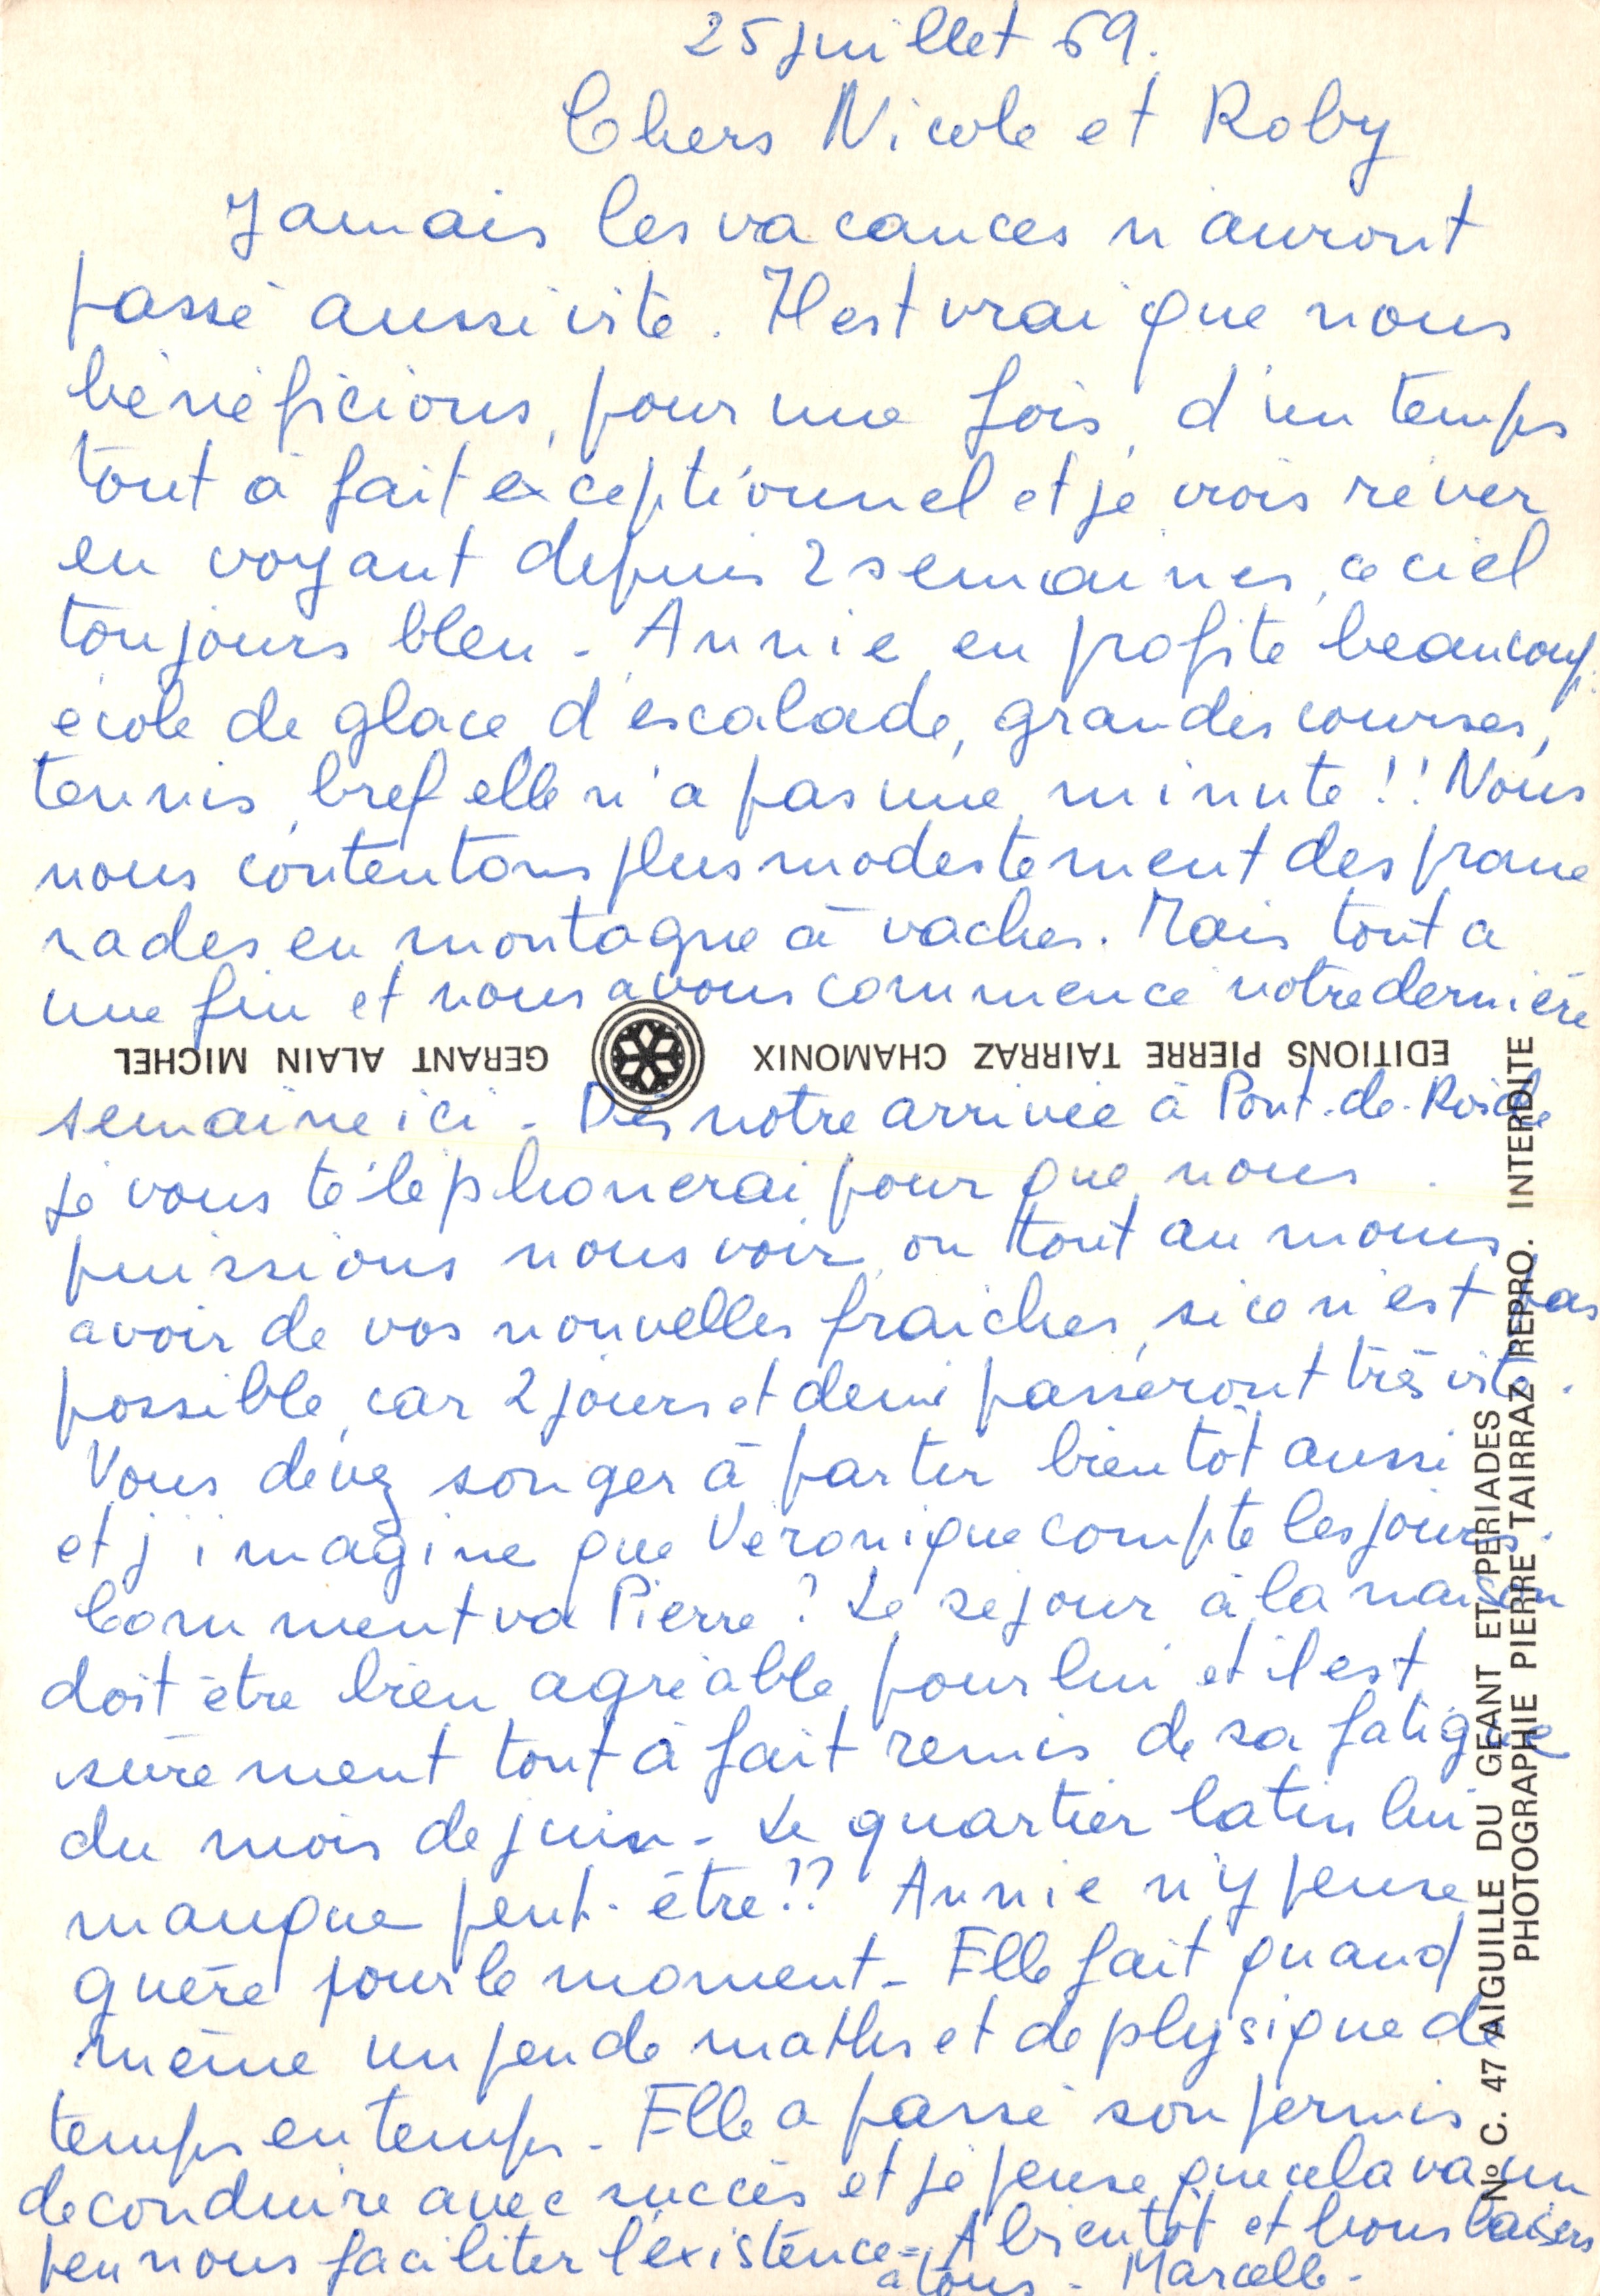 25 juillet 69.
Chers Nicole et Roby
Jamais les vacances n'auront
passé aussi vite. Il est vrai que nous
bénéficions, pour une fois, d'un temps
tout à fait exceptionnel et je crois rêver
en voyant depuis 2 semaines, ce ciel
toujours bleu - Annie en profite beaucoup:
école de glace, d'escalade, grandes courses,
tennis, bref elle n'a pas une minute!! Nous
nous contentons plus modestement des prome
nades en montagne à vaches. Mais tout a
une fin et nous avons commencé notre dernière
EDITIONS PIERRE TAIRRAZ CHAMONIX GERANT ALAIN MICHEL
semaine ici - Dès notre arrivée à Pont-de-Roide
je vous téléphonerai pour que nous
puissions nous voir, ou tout au moins
avoir de vos nouvelles fraiches, si ce n'est pas
possible, car 2 jours et demi passeront très vite.
Vous devez songer à partir bientôt aussi
et j'imagine que Véronique compte les jours.
Comment va Pierre? Le séjour à la maison
doit être bien agréable pour lui et il est
surement tout à fait remis de sa fatigue
du mois de juin - Le quartier latin lui
manque peut-être!? Annie n'y pense
guère pour le moment - Elle fait quand
même un peu de maths et de physique de
temps en temps - Elle a passé son permis
de conduire avec succès et je pense que cela va un
peu nous faciliter l'existence - A bientôt et bons baisers
à tous - Marcelle -
Nº C. 47 AIGUILLE DU GEANT ET PERIADES
PHOTOGRAPHIE PIERRE TAIRRAZ REPRO. INTERDITE